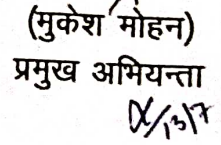 (मुकेश मोहन)
प्रमुख अभियन्ता